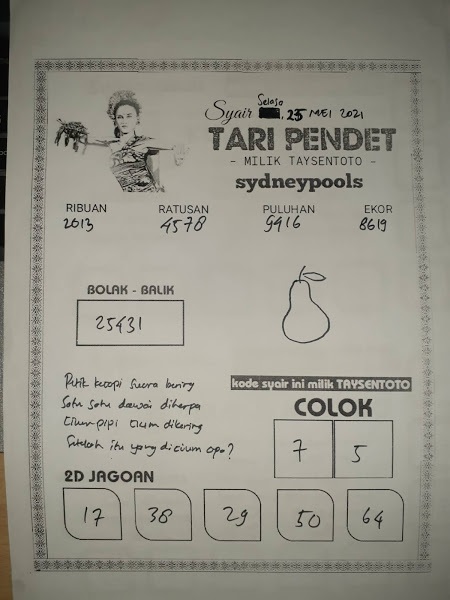 Syair Selasa, 25 MEI 2021
TARI PENDET
- MILIK TAYSENTOTO -
sydneypools
RIBUAN RATUSAN PULUHAN EKOR
2013 4578 9916 8619
BOLAK - BALIK
25431
kode syair ini milik TAYSENTOTO
COLOK
7 5
Petik kecapi suara bening
Satu satu dawai
Cium pipi cium dikening
Setelah itu yang dicium apa?
2D JAGOAN
17 38 29 50 64